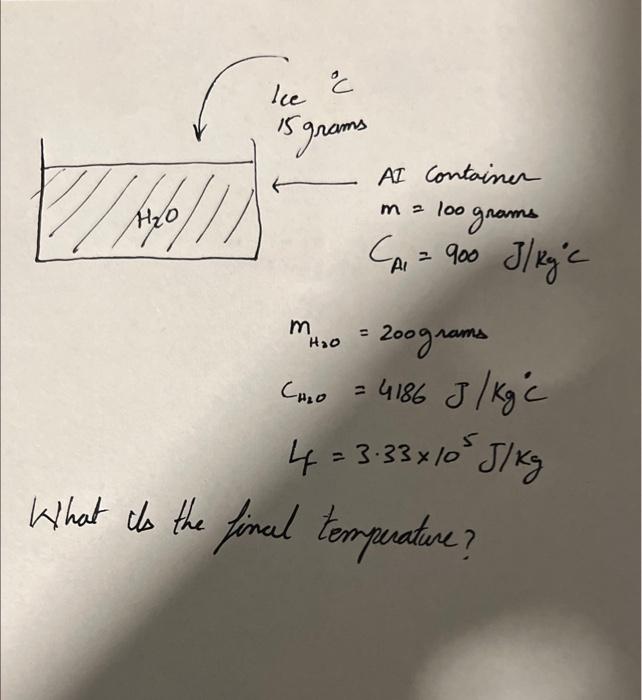 Ice °C
15 grams
H₂O
AI Container
m = 100 grams
C_Al = 900 J/kg°C
m_H₂O = 200 grams
C_H₂O = 4186 J/kg°C
Lf = 3.33 × 10⁵ J/kg
What is the final temperature?